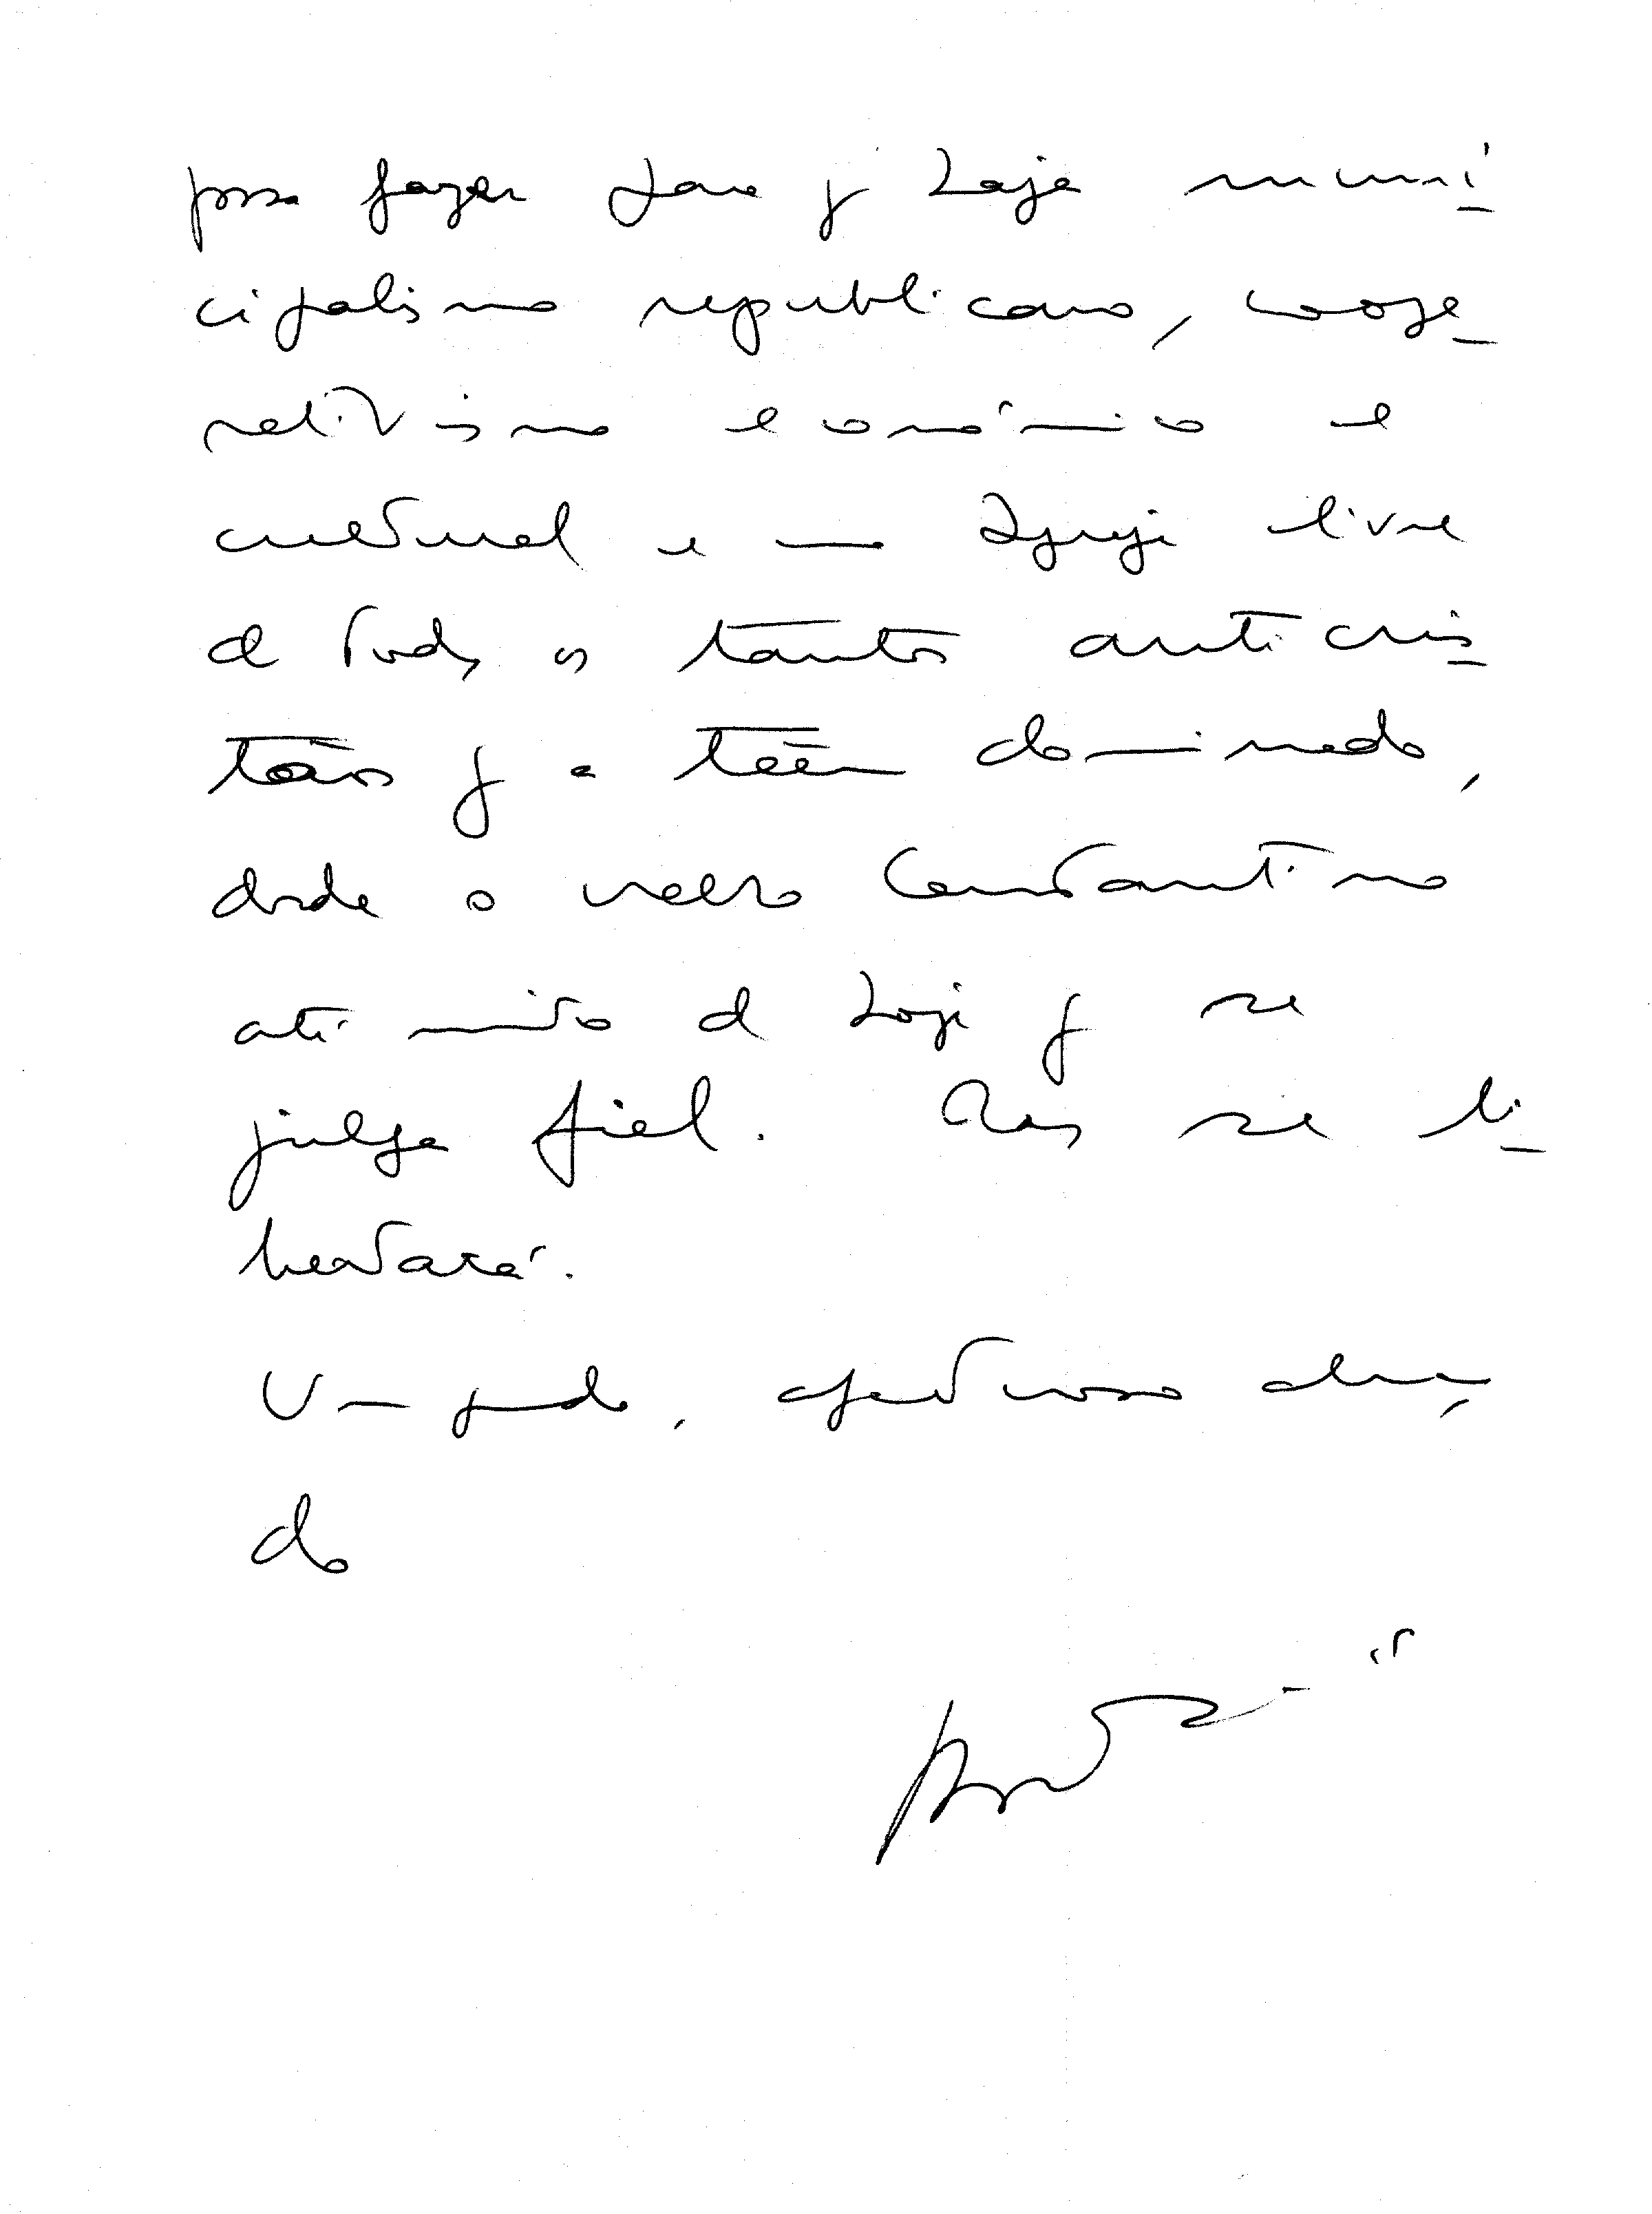 possa fazer para q haja muni
cipalismo republicano, coope_
rativismo económico e
cultural e uma Igreja livre
de todos os tantos anticris
tãos q a têem dominado,
desde o velho Constantino
até muito de hoje q se
julga fiel. Mas se li_
bertará.
Um grande, afectuoso abraço
do